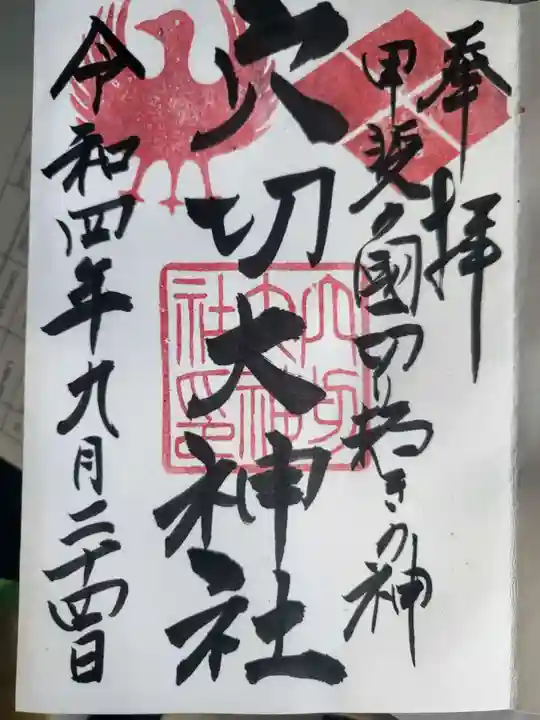 奉拝
甲斐の國の拓きの神
穴切大神社
穴切
大神
社印
令和四年九月二十四日